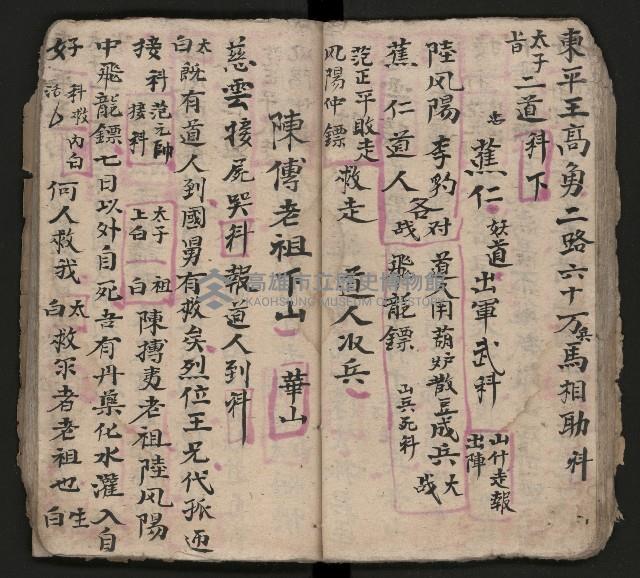 東平王高勇二路六十万兵馬相助科
太子旨二道科下
蕉仁妖道出軍武科 山什走報出陣
陸风陽李豹各对道人用葫炉散豆成兵大战
蕉仁道人战飛龍鏢 山兵死科
范正平敗走救走 道人收兵
风陽中鏢
陳傅老祖下山 華山
慈雲接屍哭科報道人到科
太白既有道人到國舅有救矣烈位王兄代孤迊
接科范元帥接科 太子上白 祖白陳摶吾老祖陸风陽
中飛龍鏢七日以外自死吾有丹藥化水灌入自
好科救活內白何人救我太白救尔者老祖也生白
高雄市立歷史博物館
KAOHSIUNG MUSEUM OF HISTORY